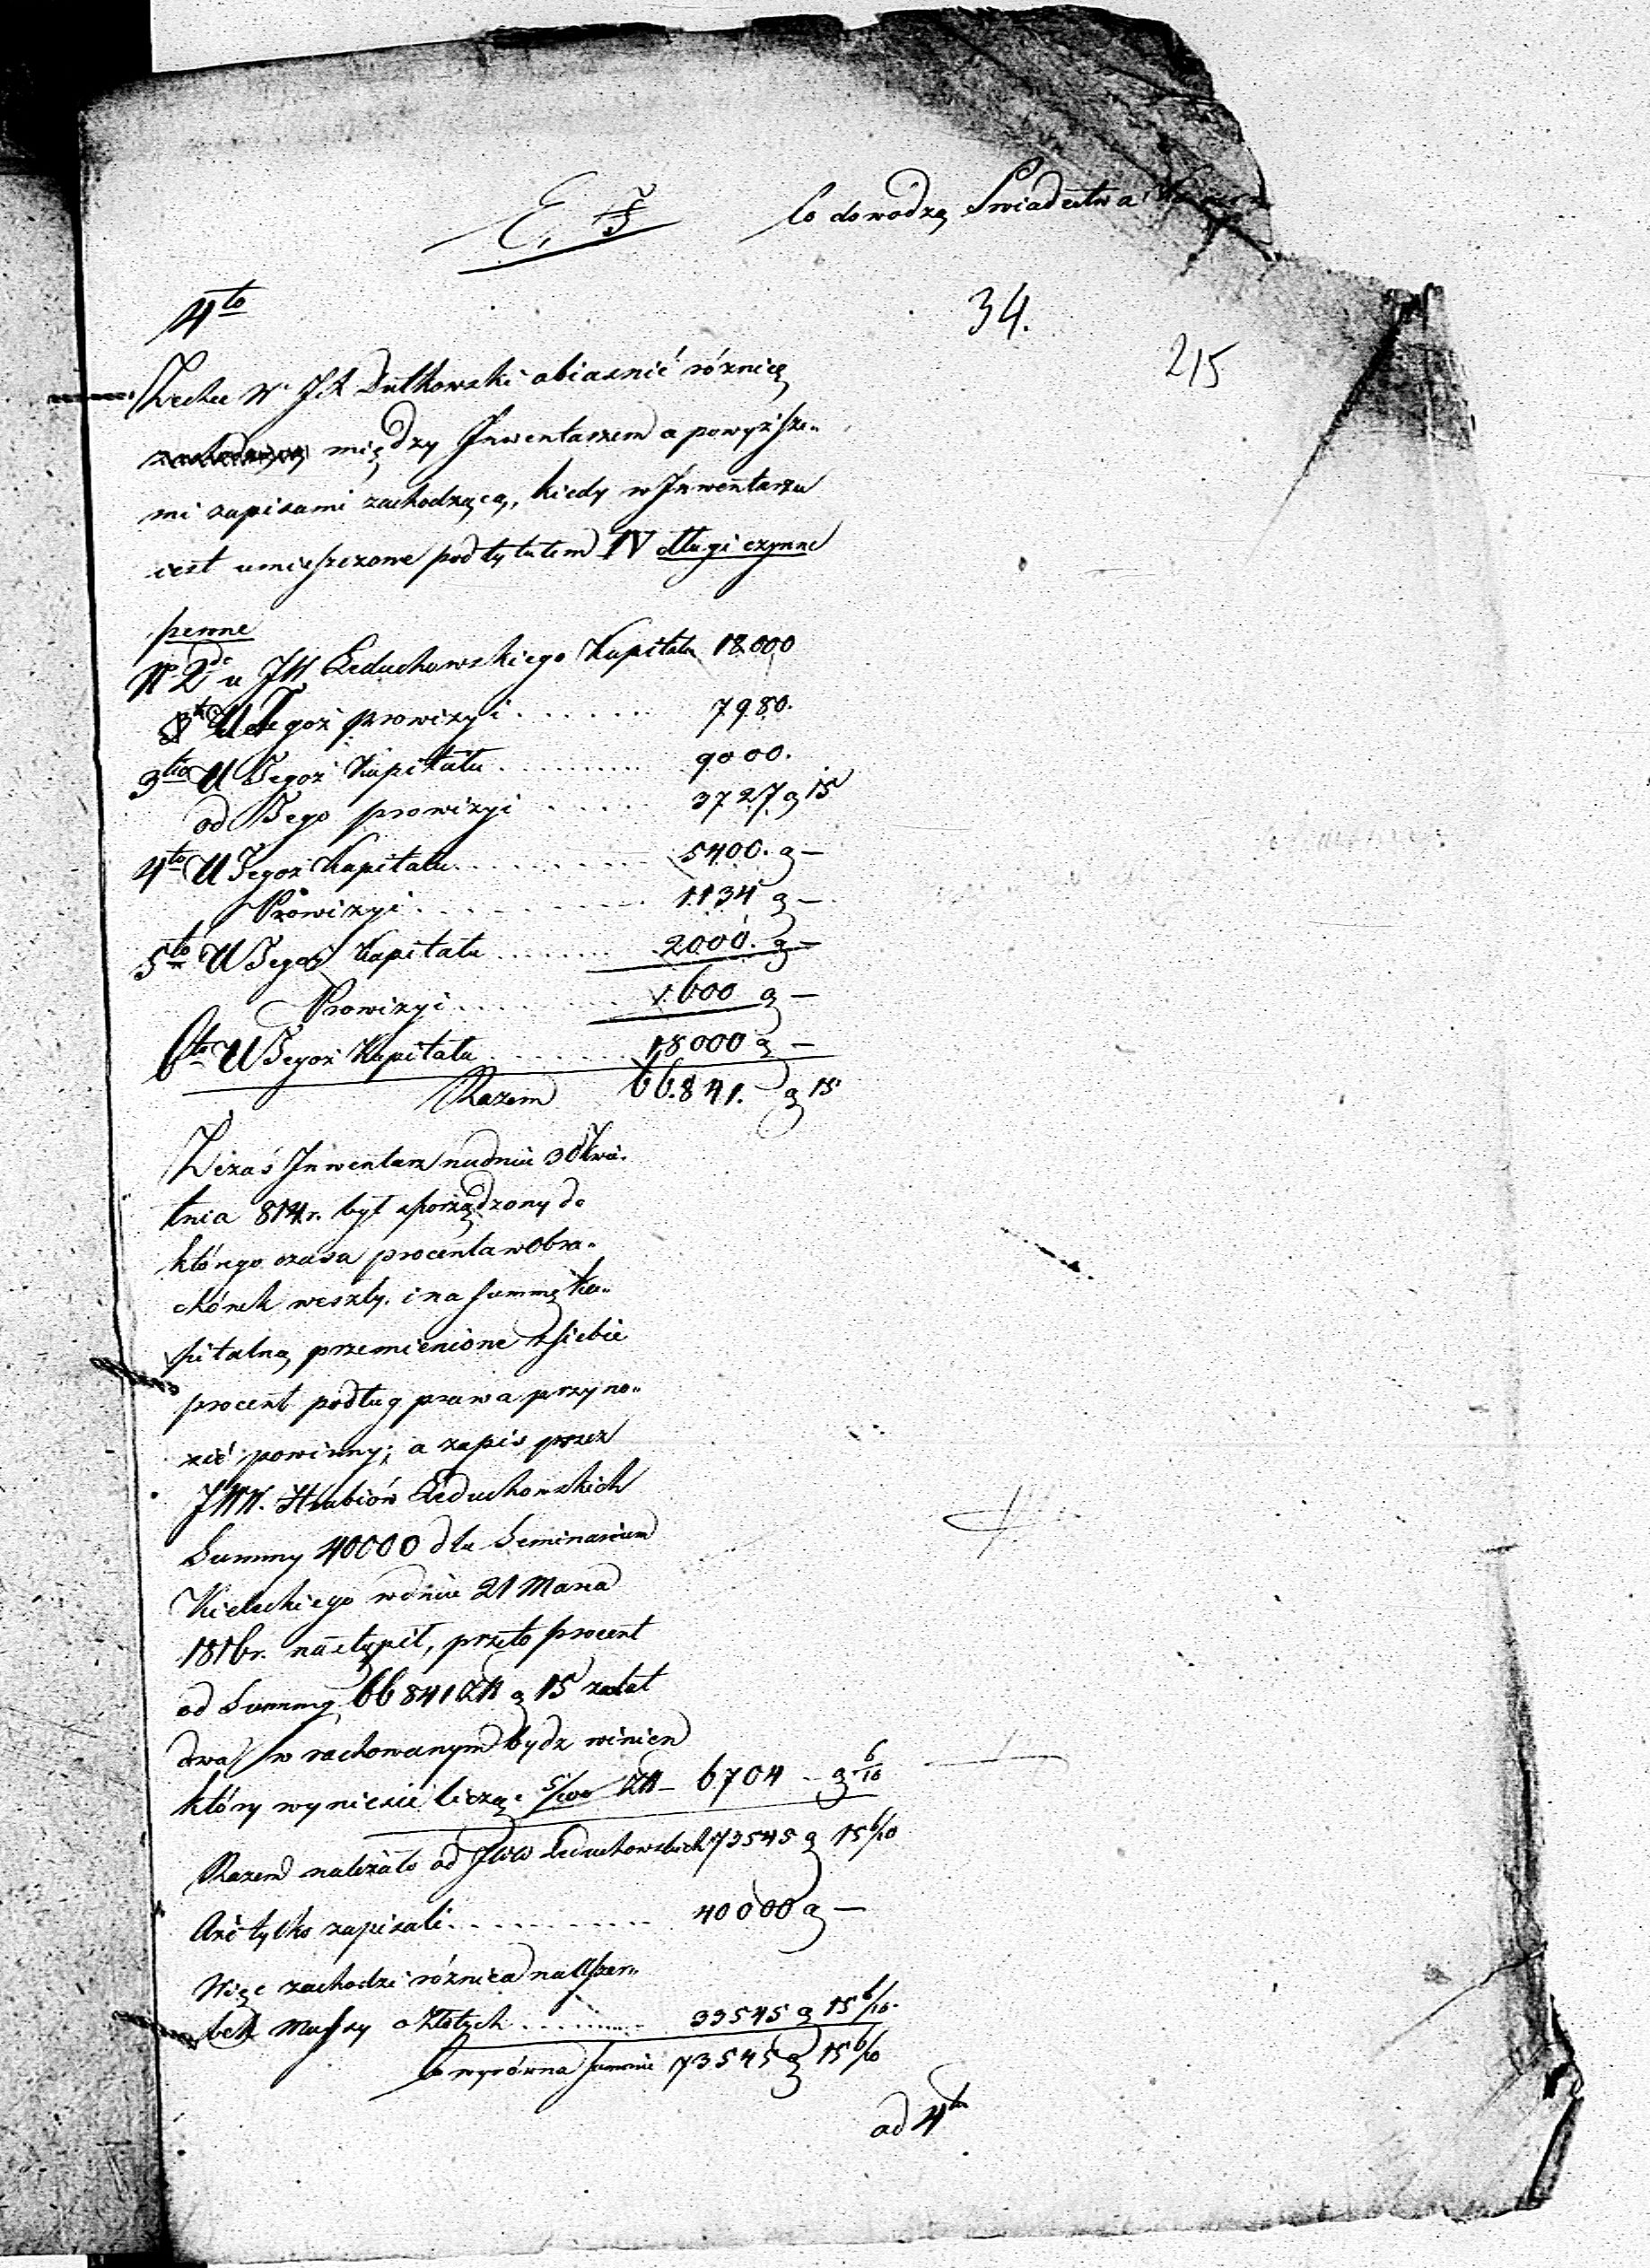 E, F
Co dowodzą Swiadectwa
34.
215
4to
Zechce W JX Dutkowski obiasnić róznicę
między Inwentarzem a powyższe„
mi zapisami zachodzącą, kiedy w Inwentarzu
iest umieszczone pod tytułem IV długi czynne
pewne
No 2do u JW Leduchowskiego Kapitału 18000
U Tegoż prowizyi . . . . . . 7980.
3tio U Tegoż Kapitału . . . . . . . . . 9000.
od Tego prowizyi . . . . . 3727 g 15
4to U Tegoż Kapitału . . . . . . . . . 5400. g —
Prowizyi . . . . . . . . . . 1134 g —
5to U Tegoż Kapitału . . . . . . . . 2000. g —
Prowizyi . . . . . . . . . 1600 g —
6to U Tegoż Kapitału . . . . . . . . 18000 g —
Razem 66.841. g 15
Zezaś Inwentarz na dniu 30 Kwie„
tnia 814 r. był sporządzony do
którego czasu procenta w Obra„
chónek weszły. i na summę Ka„
pitalną przemienione z siebie
procent podług prawa przyno„
sić powinny; a zapis przez
JWW. Hrabiów Leduchowskich
Summy 40000 dla Seminarium
Kieleckiego w dniu 21 Marca
1816 r. nastąpił, przeto procent
od Summy 66841 Zł g 15 za lat
dwa w rachowanym bydz winien
który wyniesie licząc 5/100 Zł — 6704 — g 6/10
Razem należało od JWW Leduchowskich 73545 g 15 6/10
Ani tylko zapisali . . . . . . . . . . . 40000 g —
Więc zachodzi róznica na Uszer„
bek Massy o Złotych . . . . . . . . . 33545 g 15 6/10.
Co wyrówna summie 73545 g 15 6/10
ad 4to